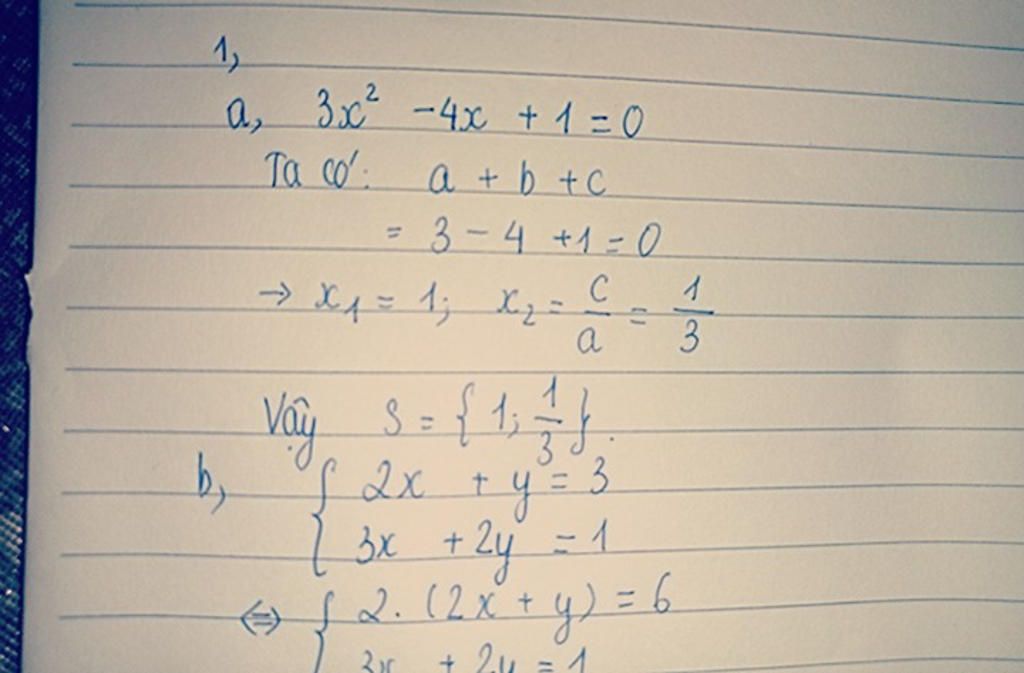 1,
a, 3x² - 4x + 1 = 0
Ta có: a + b + c
= 3 - 4 + 1 = 0
→ x₁ = 1; x₂ = c/a = 1/3
Vậy S = {1; 1/3}.
b, { 2x + y = 3
3x + 2y = 1
⇔ { 2. (2x + y) = 6
3x + 2y = 1